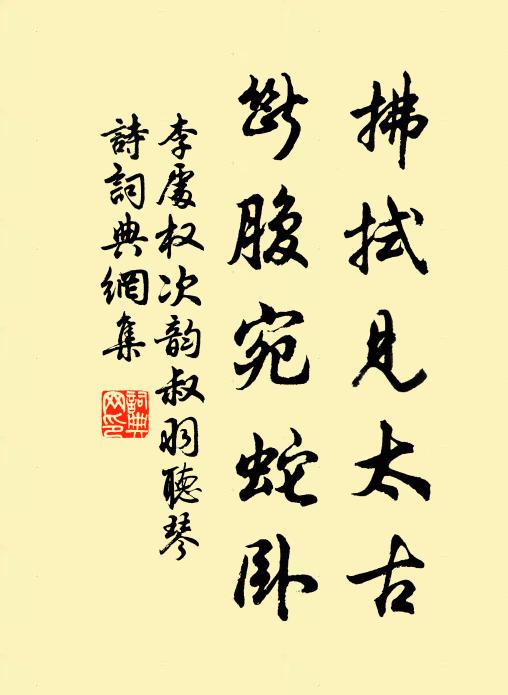 拂拭見太古
斷腹宛蛇卧
李處权次韵叔羽聽琴
詩詞典網集
詞典网印